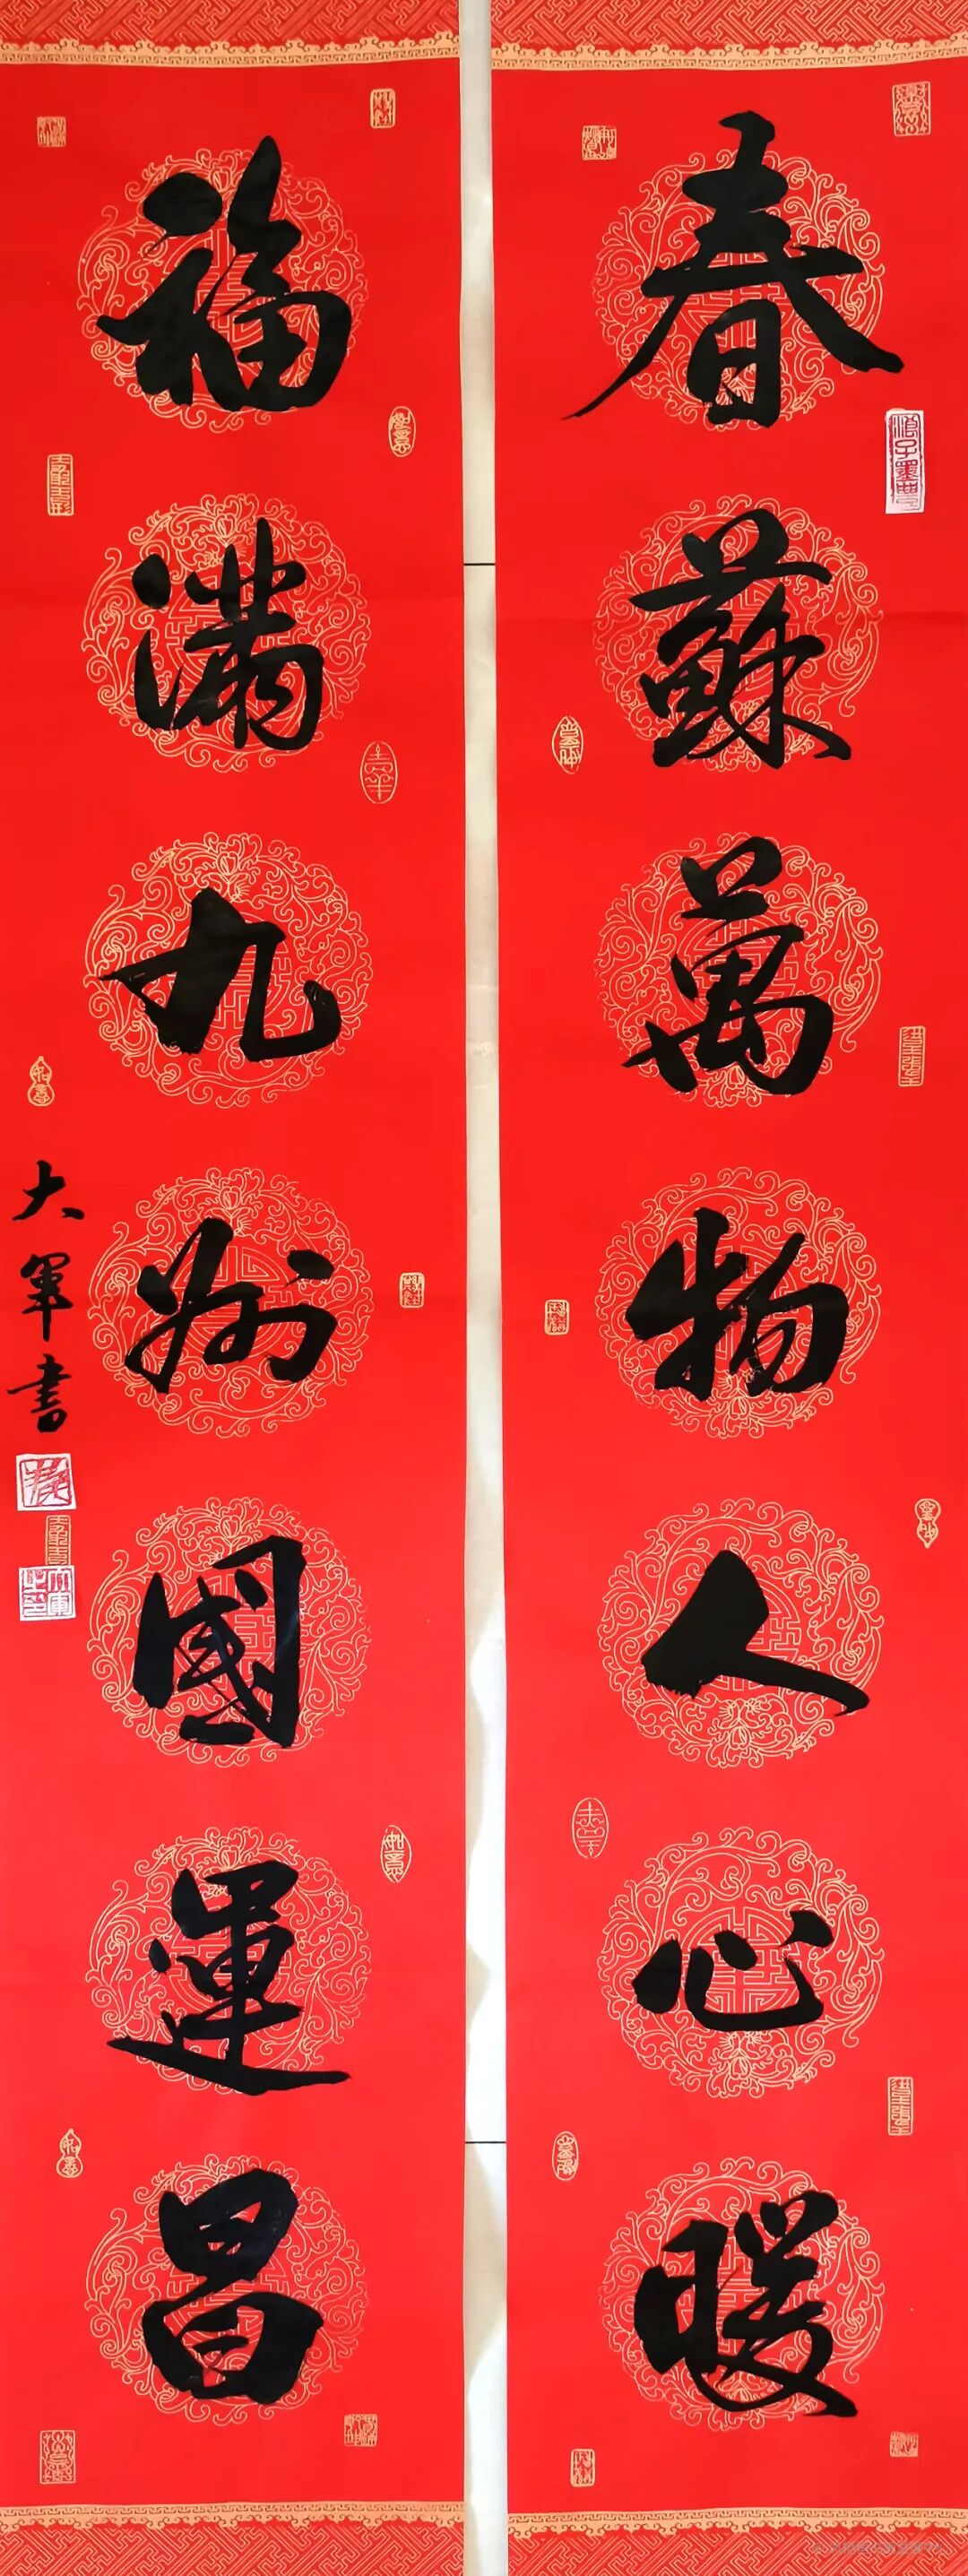 春蘇萬物人心暖
福滿九州國運昌
大軍書